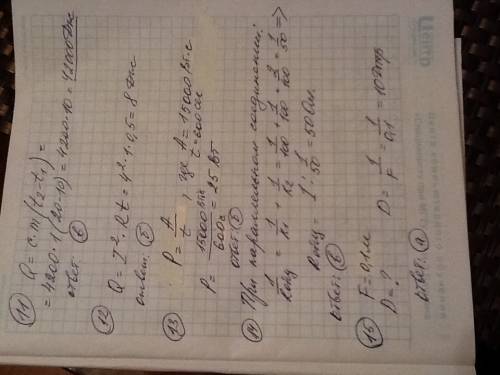 11) Q = c·m(t₂-t₁) =
= 4200·1(20-10) = 4200·10 = 42000 Дж
ответ: в
12) Q = I²·R t = 4²·1·0,5 = 8 Дж
ответ: б
13) P = A/t, где A = 15000 Вт·с
t = 600 сек
P = 15000 Вт·с/600 с = 25 Вт
ответ: б
14) При параллельном соединении:
1/Rобщ = 1/R₁ + 1/R₂ = 1/100 + 1/100 = 2/100 = 1/50 =>
Rобщ = 1 : 1/50 = 50 Ом.
ответ: в
15) F = 0,1 м
D = ? D = 1/F = 1/0,1 = 10 дптр
ответ: а
Центр